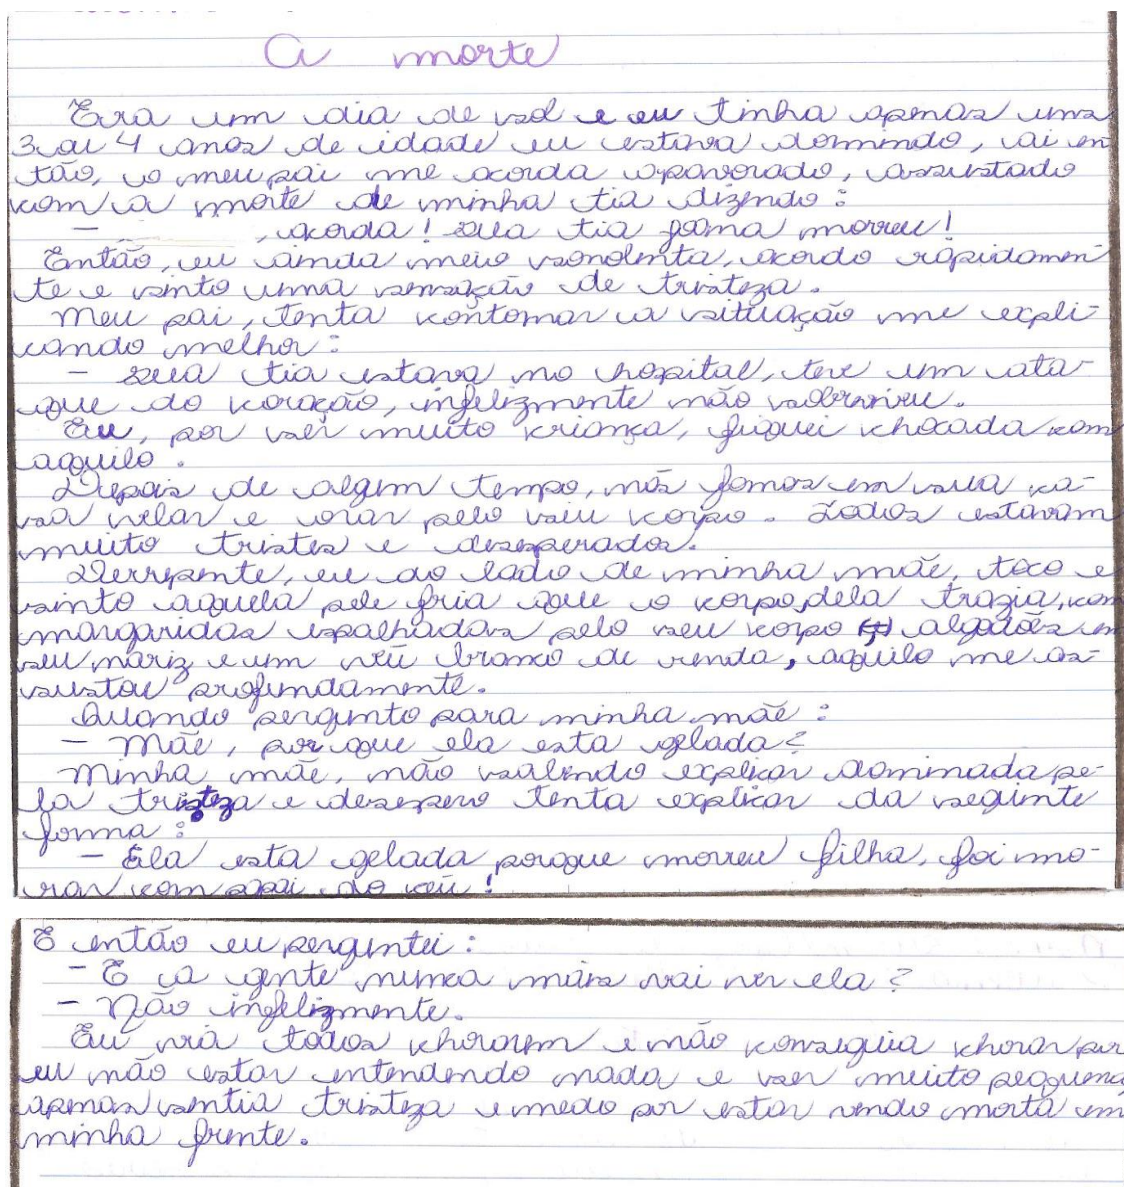 A morte
Era um dia de sol e eu tinha apenas uns
3 ou 4 anos de idade eu estava dormindo, ai en
tão, o meu pai me acorda apavorado, assustado
com a morte de minha tia dizendo:
- , acorda! sua tia morreu!
Então, eu ainda meio sonolenta, acordo rápidamen
te e sinto uma sensação de tristeza.
Meu pai, tenta contornar a situação me expli-
cando melhor:
- sua tia estava no hospital, teve um ata-
que do coração, infelizmente não sobreviveu.
Eu, por ser muito criança, fiquei chocada com
aquilo.
Depois de algum tempo, nós fomos em sua ca-
sa velar e orar pelo seu corpo. Todos estavam
muito tristes e desesperados.
Derrepente, eu ao lado de minha mãe, toco e
sinto aquela pele fria que o corpo dela trazia, com
margaridas espalhadas pelo seu corpo algodões em
seu nariz e um véu branco de renda, aquilo me as-
sustou profundamente.
Quando pergunto para minha mãe:
- Mãe, por que ela esta gelada?
Minha mãe, não sabendo explicar dominada pe-
la tristeza e desespero tenta explicar da seguinte
forma:
- Ela esta gelada porque morreu filha, foi mo-
rar com papai do céu!
E então eu perguntei:
- E a gente nunca mais vai ver ela?
- Não infelizmente.
Eu via todos chorarem e não conseguia chorar por
eu não estar entendendo nada e ser muito pequena
apenas sentia tristeza e medo por estar vendo morta em
minha frente.